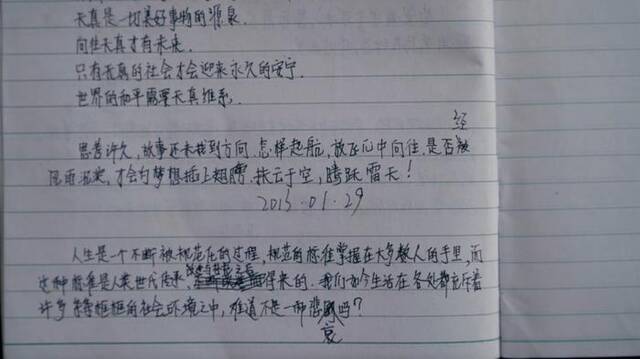 天真是一切美好事物的源泉.
向往天真才有未来.
只有天真的社会才会迎来永久的安宁
世界的和平需要天真维系.
经
思考许久,故事还未找到方向.怎样起航,放飞心中向往.是否被
风雨 ,才会为梦想插上翅膀.扶云于空,腾跃雷天!
2015.01.29
人生是一个不断被规范化的过程,规范的标准掌握在大多数人的手里,而
这种标准是人类世代传承, 得来的.我们如今生活在各处都充斥着
许多条条框框的社会环境之中,难道不是一种悲哀吗?